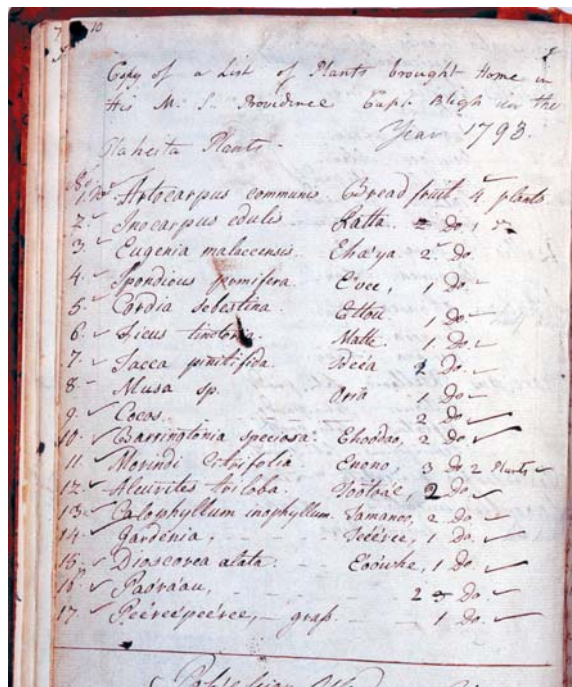 7 10
8
Copy of a List of Plants brought Home in
His M. S. Providence Capt Bligh in the
Year 1793.
Otaheita Plants.
1. Artocarpus communis Bread fruit 4 plants
2. Inocarpus edulis Ratta. 2 Do 1
3. Eugenia malaccensis. Eha'ya. 2 Do.
4. Spondious pomifera. E'vee, 1 Do.
5. Cordia sebestina. Ettou 1 Do
6. Ficus tinctoria Matte. 1 Do.
7. Tacca pinitifida. 2 Do.
8. Musa sp. Oria 1 Do
9. Cocos. 2 Do
10. Barringtonia speciosa. Ehoodao, 2 Do
11. Morindi citrifolia. Enono, 3 Do 2 Plants
12. Aleurites triloba. 2 Do
13. Calophyllum inophyllum. Tamanoo, 2 Do
14. Gardenia, 1 Do.
15. Dioscorea alata. 1 Do.
16. Paoraau, 2 3 Do
17. Peereepeeree, - grass. - 1 Do.